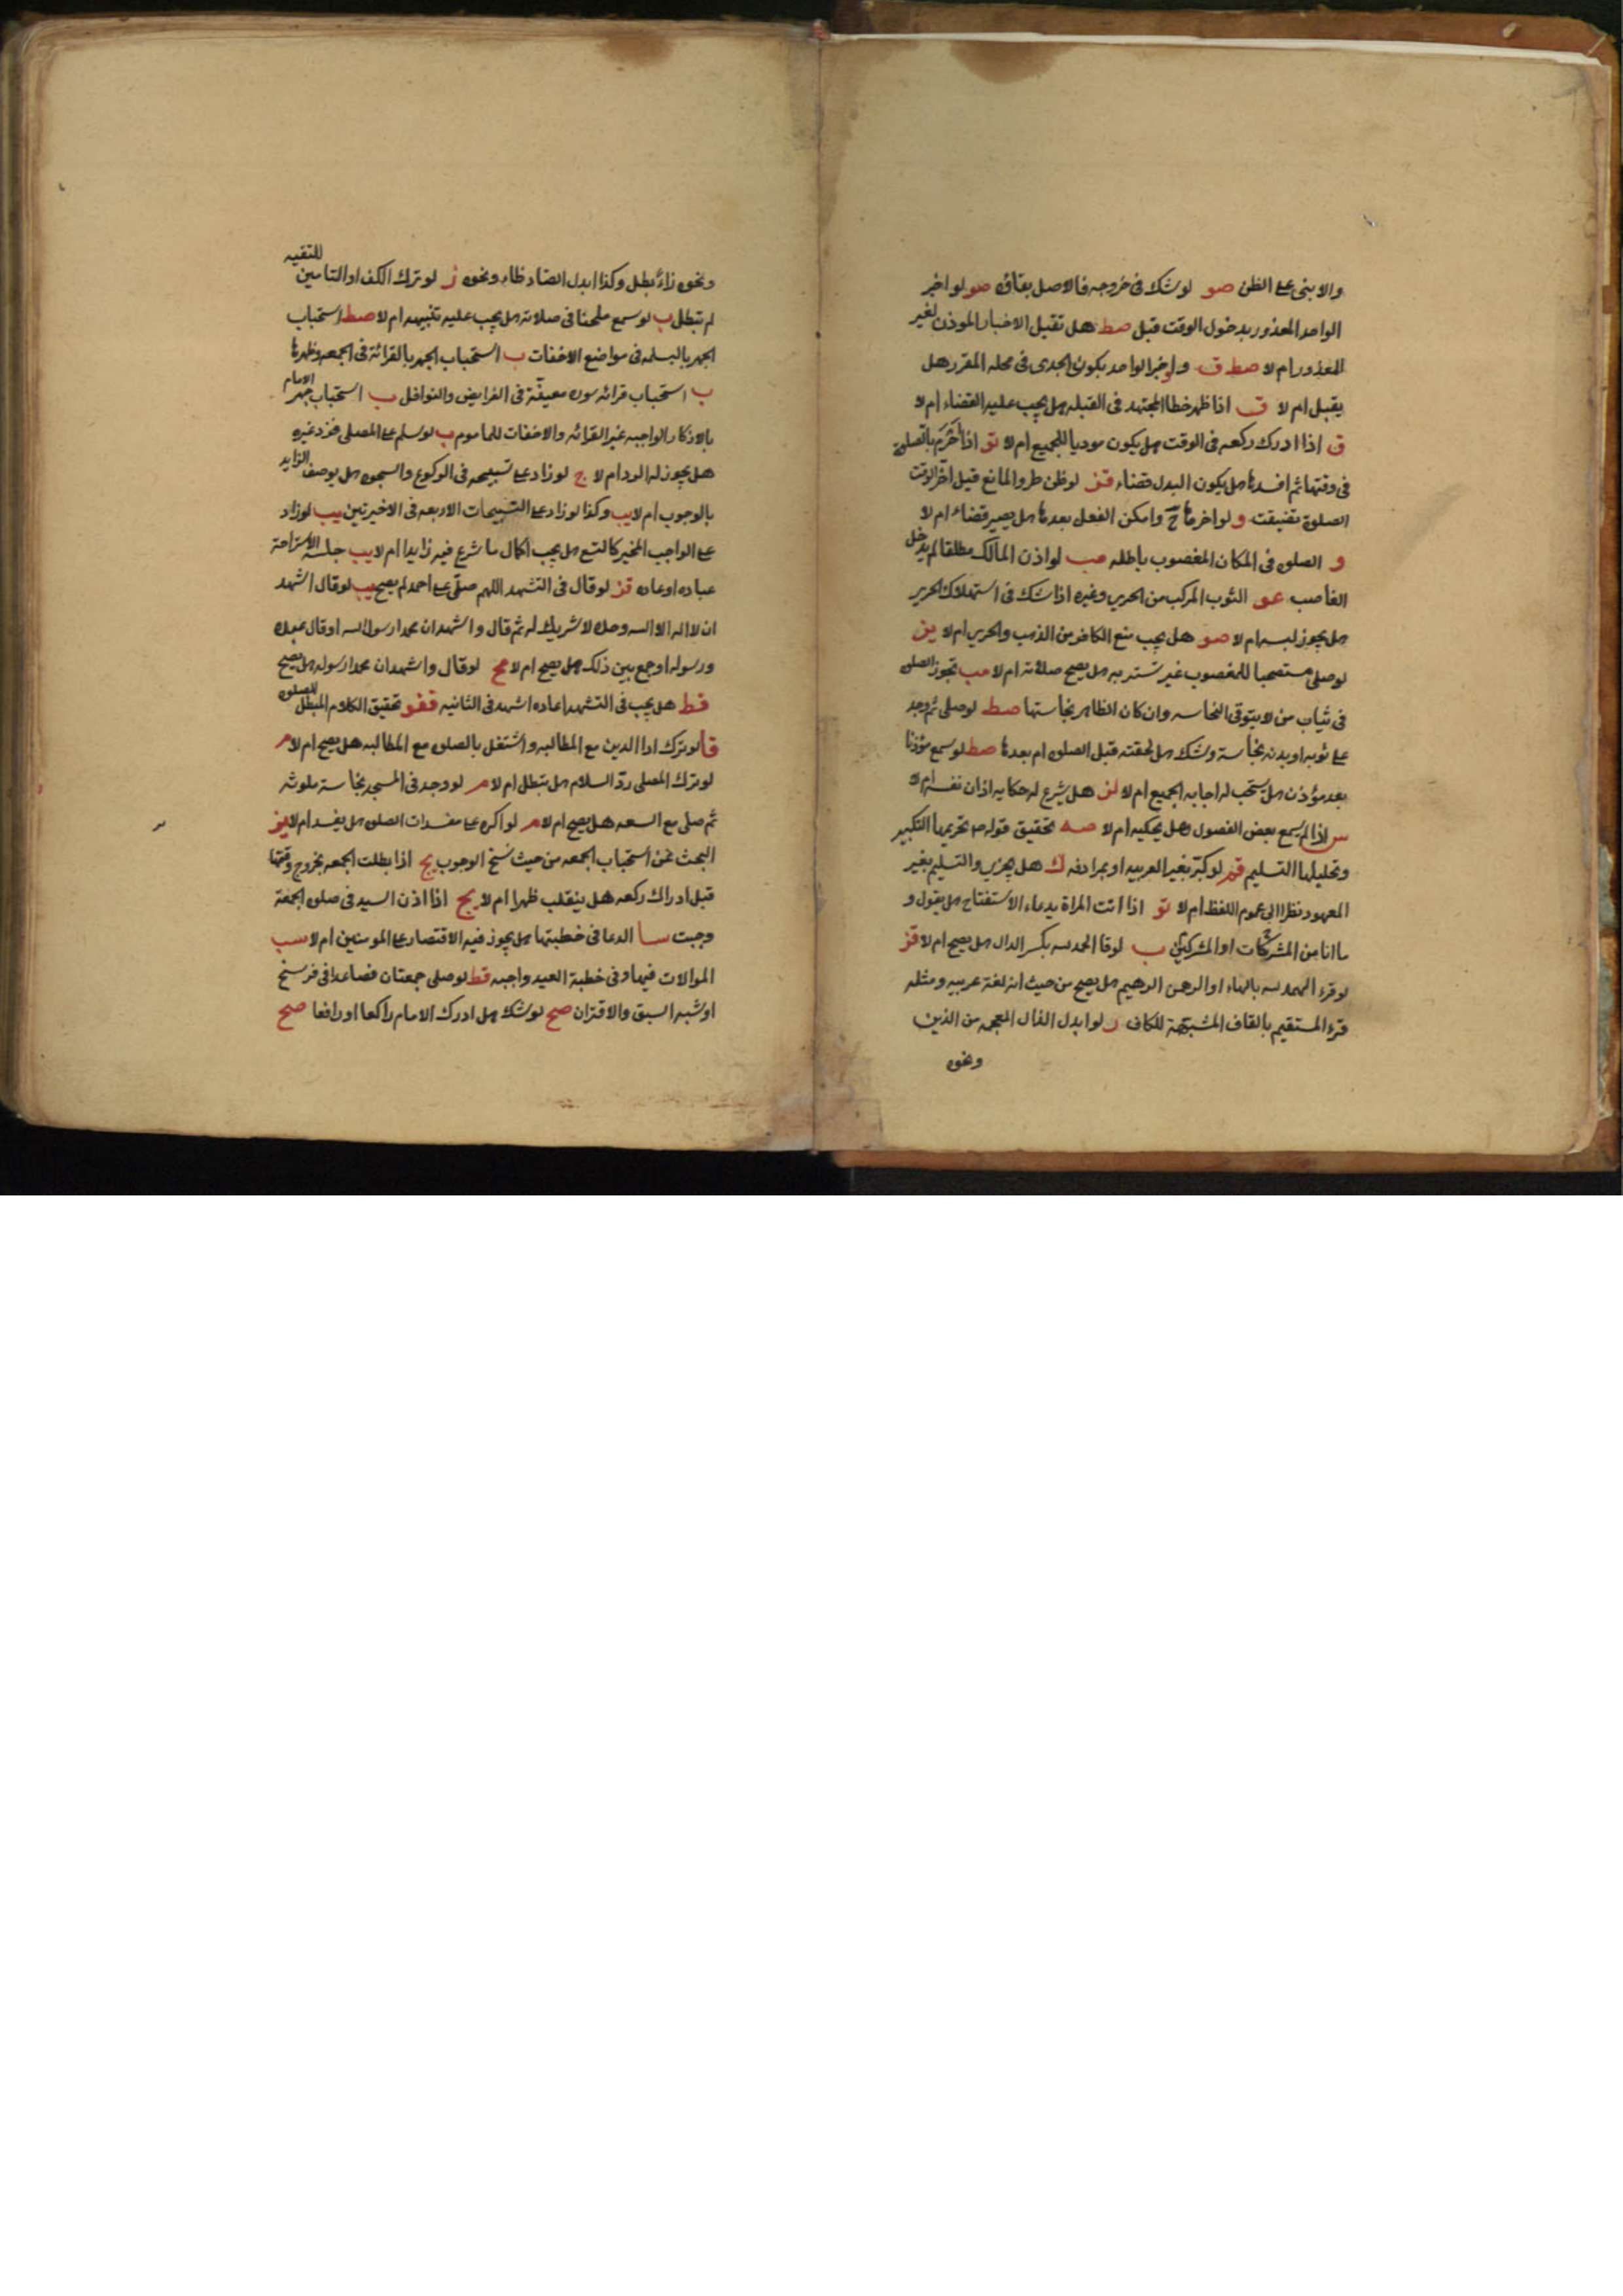 والا بنى على الظن صو لو شك فى خروجه فالاصل بقاؤه صو لو اخبر
الواحد المعذور بدخول الوقت قبل صط هل تقبل الاخبار الموذن لغير
المعذور ام لا صط ق ولو اخبر الواحد بكون الجدى فى محله المقرر هل
يقبل ام لا ق اذا ظهر خطا المجتهد فى القبله هل يجب عليه القضاء ام لا
ق اذا ادرك ركعه فى الوقت هل يكون موديا للجميع ام لا تو اذا تحرم بالصلوة
فى وقتها ثم افسدها هل يكون البدل قضاء قز لو ظن طرو المانع قبل اخر الوقت
الصلوة تضيقت و لو اخرها ح وامكن الفعل بعدها هل يصير قضاء ام لا
و الصلوه فى المكان المغصوب باطله صب لو اذن المالك مطلقا لم يدخل
الغاصب عو الثوب المركب من الحرير وغيره اذا شك فى استهلاك الحرير
هل يجوز لبسه ام لا صو هل يجب منع الكافر من الذهب والحرير ام لا يز
لو صلى مستصحبا للمغصوب غير مستتر به هل يصح صلاته ام لا صب تجوز الصلوه
فى ثياب من لا يتوقى النجاسه وان كان الظاهر نجاستها صط لو صلى ثم وجد
على ثوبه او بدنه نجاسة وشك هل لحقته قبل الصلوه ام بعدها صط لو سمع مؤذنا
بعد مؤذن هل يستحب له اجابه الجميع ام لا لز هل يشرع له حكايه اذان نفسه ام لا
س اذا لم يسمع بعض الفصول وهل يحكيه ام لا صه تحقيق قوله ص تحريمها التكبير
وتحليلها التسليم قز لو كبر بغير العربيه او بمرادفه ك هل يجزي والتسليم بغير
المعهود نظرا الى عموم اللفظ ام لا تو اذا اتت المراة بدعاء الاستفتاح هل يقول و
ما انا من المشركات او المشركين ب لو قا الحمد لله بكسر الدال هل يصح ام لا قز
لو قرء الهمد لله بالهاء او الرهمن الرهيم هل يصح من حيث انه لغة عربيه ومثله
قرء المستقيم بالقاف المشبهة للكاف ن لو ابدل الذال المعجمه من الذين
ونحوه
ونحوه زاء بطل وكذا ابدل الضاد ظاء ونحوه ز لو ترك الكف او التامين للتقيه
لم تبطل ب لو سمع ملحنا فى صلاته هل يجب عليه تنبيهه ام لا صط استحباب
الجهر بالبسمله فى مواضع الاخفات ب استحباب الجهر بالقرائة فى الجمعه وظهرها
ب استحباب قرائه سوره معينة فى الفرايض والنوافل ب استحباب جهر الامام
بالاذكار الواجبه غير القرائه والاخفات للماموم ب لو سلم على المصلى فرد غيره
هل يجوز له الرد ام لا ج لو زاد على تسبيحه فى الركوع والسجود هل يوصف الزايد
بالوجوب ام لا يب وكذا لو زاد على التسبيحات الاربعه فى الاخيرتين يب لو زاد
على الواجب المخير كالتسع هل يجب اكمال ما شرع فيه زايدا ام لا يب جلسه الاستراحة
عباده او عاده قز لو قال فى التشهد اللهم صلى على احمد لم يصح يب لو قال اشهد
ان لا اله الا الله وحده لا شريك له ثم قال واشهد ان محمدا رسول الله او قال عبده
ورسوله او جمع بين ذلك هل يصح ام لا مح لو قال واشهد ان محمدا رسوله هل يصح
قط هل يجب فى التشهد اعاده اشهد فى الثانيه قفو تحقيق الكلام المبطل للصلوه
قا لو ترك ادا الدين مع المطالبه واشتغل بالصلوه مع المطالبه هل يصح ام لا م
لو ترك المصلى رد السلام هل تبطل ام لا م لو وجد فى المسجد نجاسة ملوثه
ثم صلى مع السعه هل يصح ام لا م لو اكره على مفسدات الصلوه هل يفسد ام لا يز
البحث عن استحباب الجمعه من حيث نسخ الوجوب يح اذا بطلت الجمعه بخروج وقتها
قبل ادراك ركعه هل ينقلب ظهرا ام لا يح اذا اذن السيد فى صلوه الجمعة
وجبت سا الدعا فى خطبتها هل يجوز فيه الاقتصار على المومنين ام لا سب
الموالات فيها وفى خطبة العيد واجبه قط لو صلى جمعتان فصاعدا فى فرسخ
او شبه السبق والاقتران صح لو شك هل ادرك الامام راكعا او رافعا صح